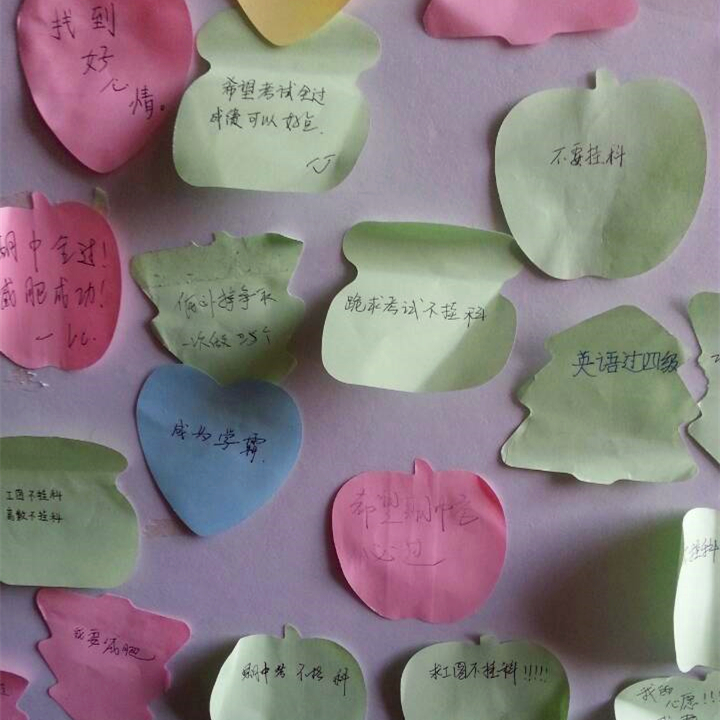 找到
好
心
情。
希望考试全过
成绩可以好点
不要挂科
期中全过!
减肥成功!
俯卧撑争取
一次做25个
跪求考试不挂科
英语过四级
成为学霸
工图不挂科
高数不挂科
希望期中
必过
我要减肥
期中考不挂科
求工图不挂科!!!!!
挂科
我的
心愿!!!